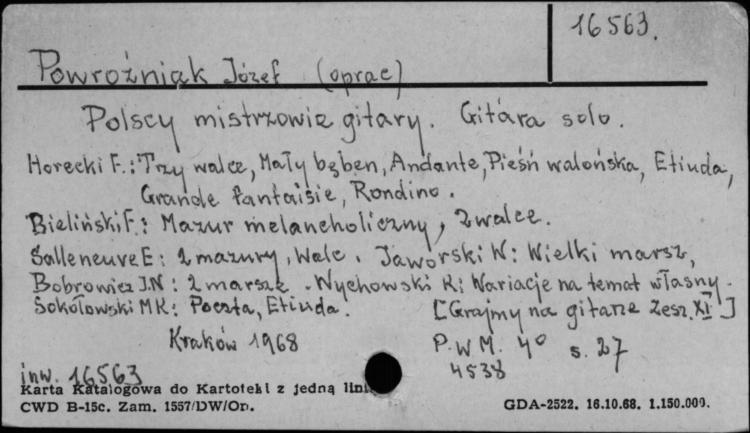 16563.
Powroźniak Józef (oprac)
Polscy mistrzowie gitary. Gitara solo.
Horecki F.: Trzy walce, Mały bęben, Andante, Pieśń walońska, Etiuda,
Grande fantaisie, Rondino.
Bieliński F.: Mazur melancholiczny, 2 walce.
Salleneuve E: 2 mazury, Walc. Jaworski W: Wielki marsz,
Bobrowicz J.N: 2 marsze. Wychowski K: Wariacje na temat własny.
Sokołowski MK: Poczta, Etiuda. [Grajmy na gitarze Zesz. XI]
Kraków 1968 P.W.M. 4° s. 27
4538
inw. 16563
Karta Katalogowa do Kartoteki z jedną
CWD B-15c. Zam. 1557/DW/On. GDA-2522. 16.10.68. 1.150.000.